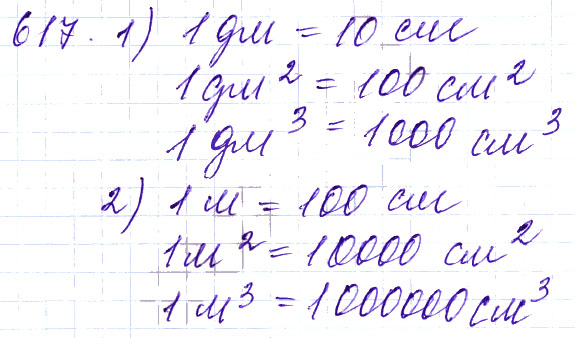 617. 1) 1 дм = 10 см
1 дм² = 100 см²
1 дм³ = 1000 см³
2) 1 м = 100 см
1 м² = 10000 см²
1 м³ = 1000000 см³